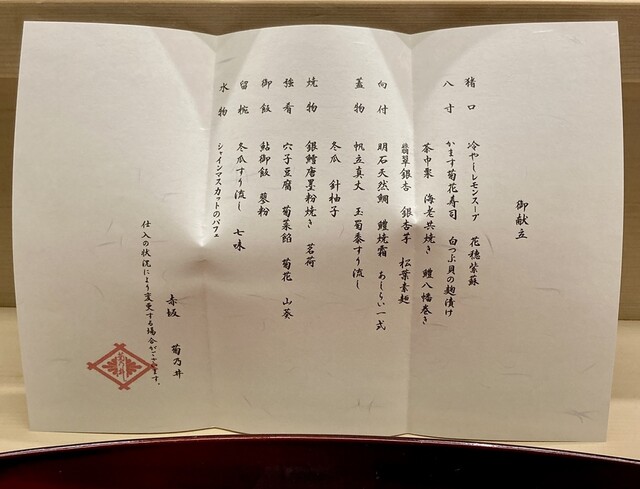 御献立
猪口 冷やしレモンスープ 花穂紫蘇
八寸 かます菊花寿司 白つぶ貝の麹漬け
茶巾栗 海老共焼き 鱧八幡巻き
翡翠銀杏 銀杏子 松葉素麺
向付 明石天然鯛 鱧焼霜 あしらい一式
蓋物 帆立真丈 玉蜀黍すり流し
冬瓜 針柚子
焼物 銀鱈唐墨粉焼き 茗荷
強肴 穴子豆腐 菊菜餡 菊花 山葵
御飯 鮎御飯 蓼粉
留椀 冬瓜すり流し 七味
水物 シャインマスカットのパフェ
赤坂 菊乃井
仕入の状況により変更する場合がございます。